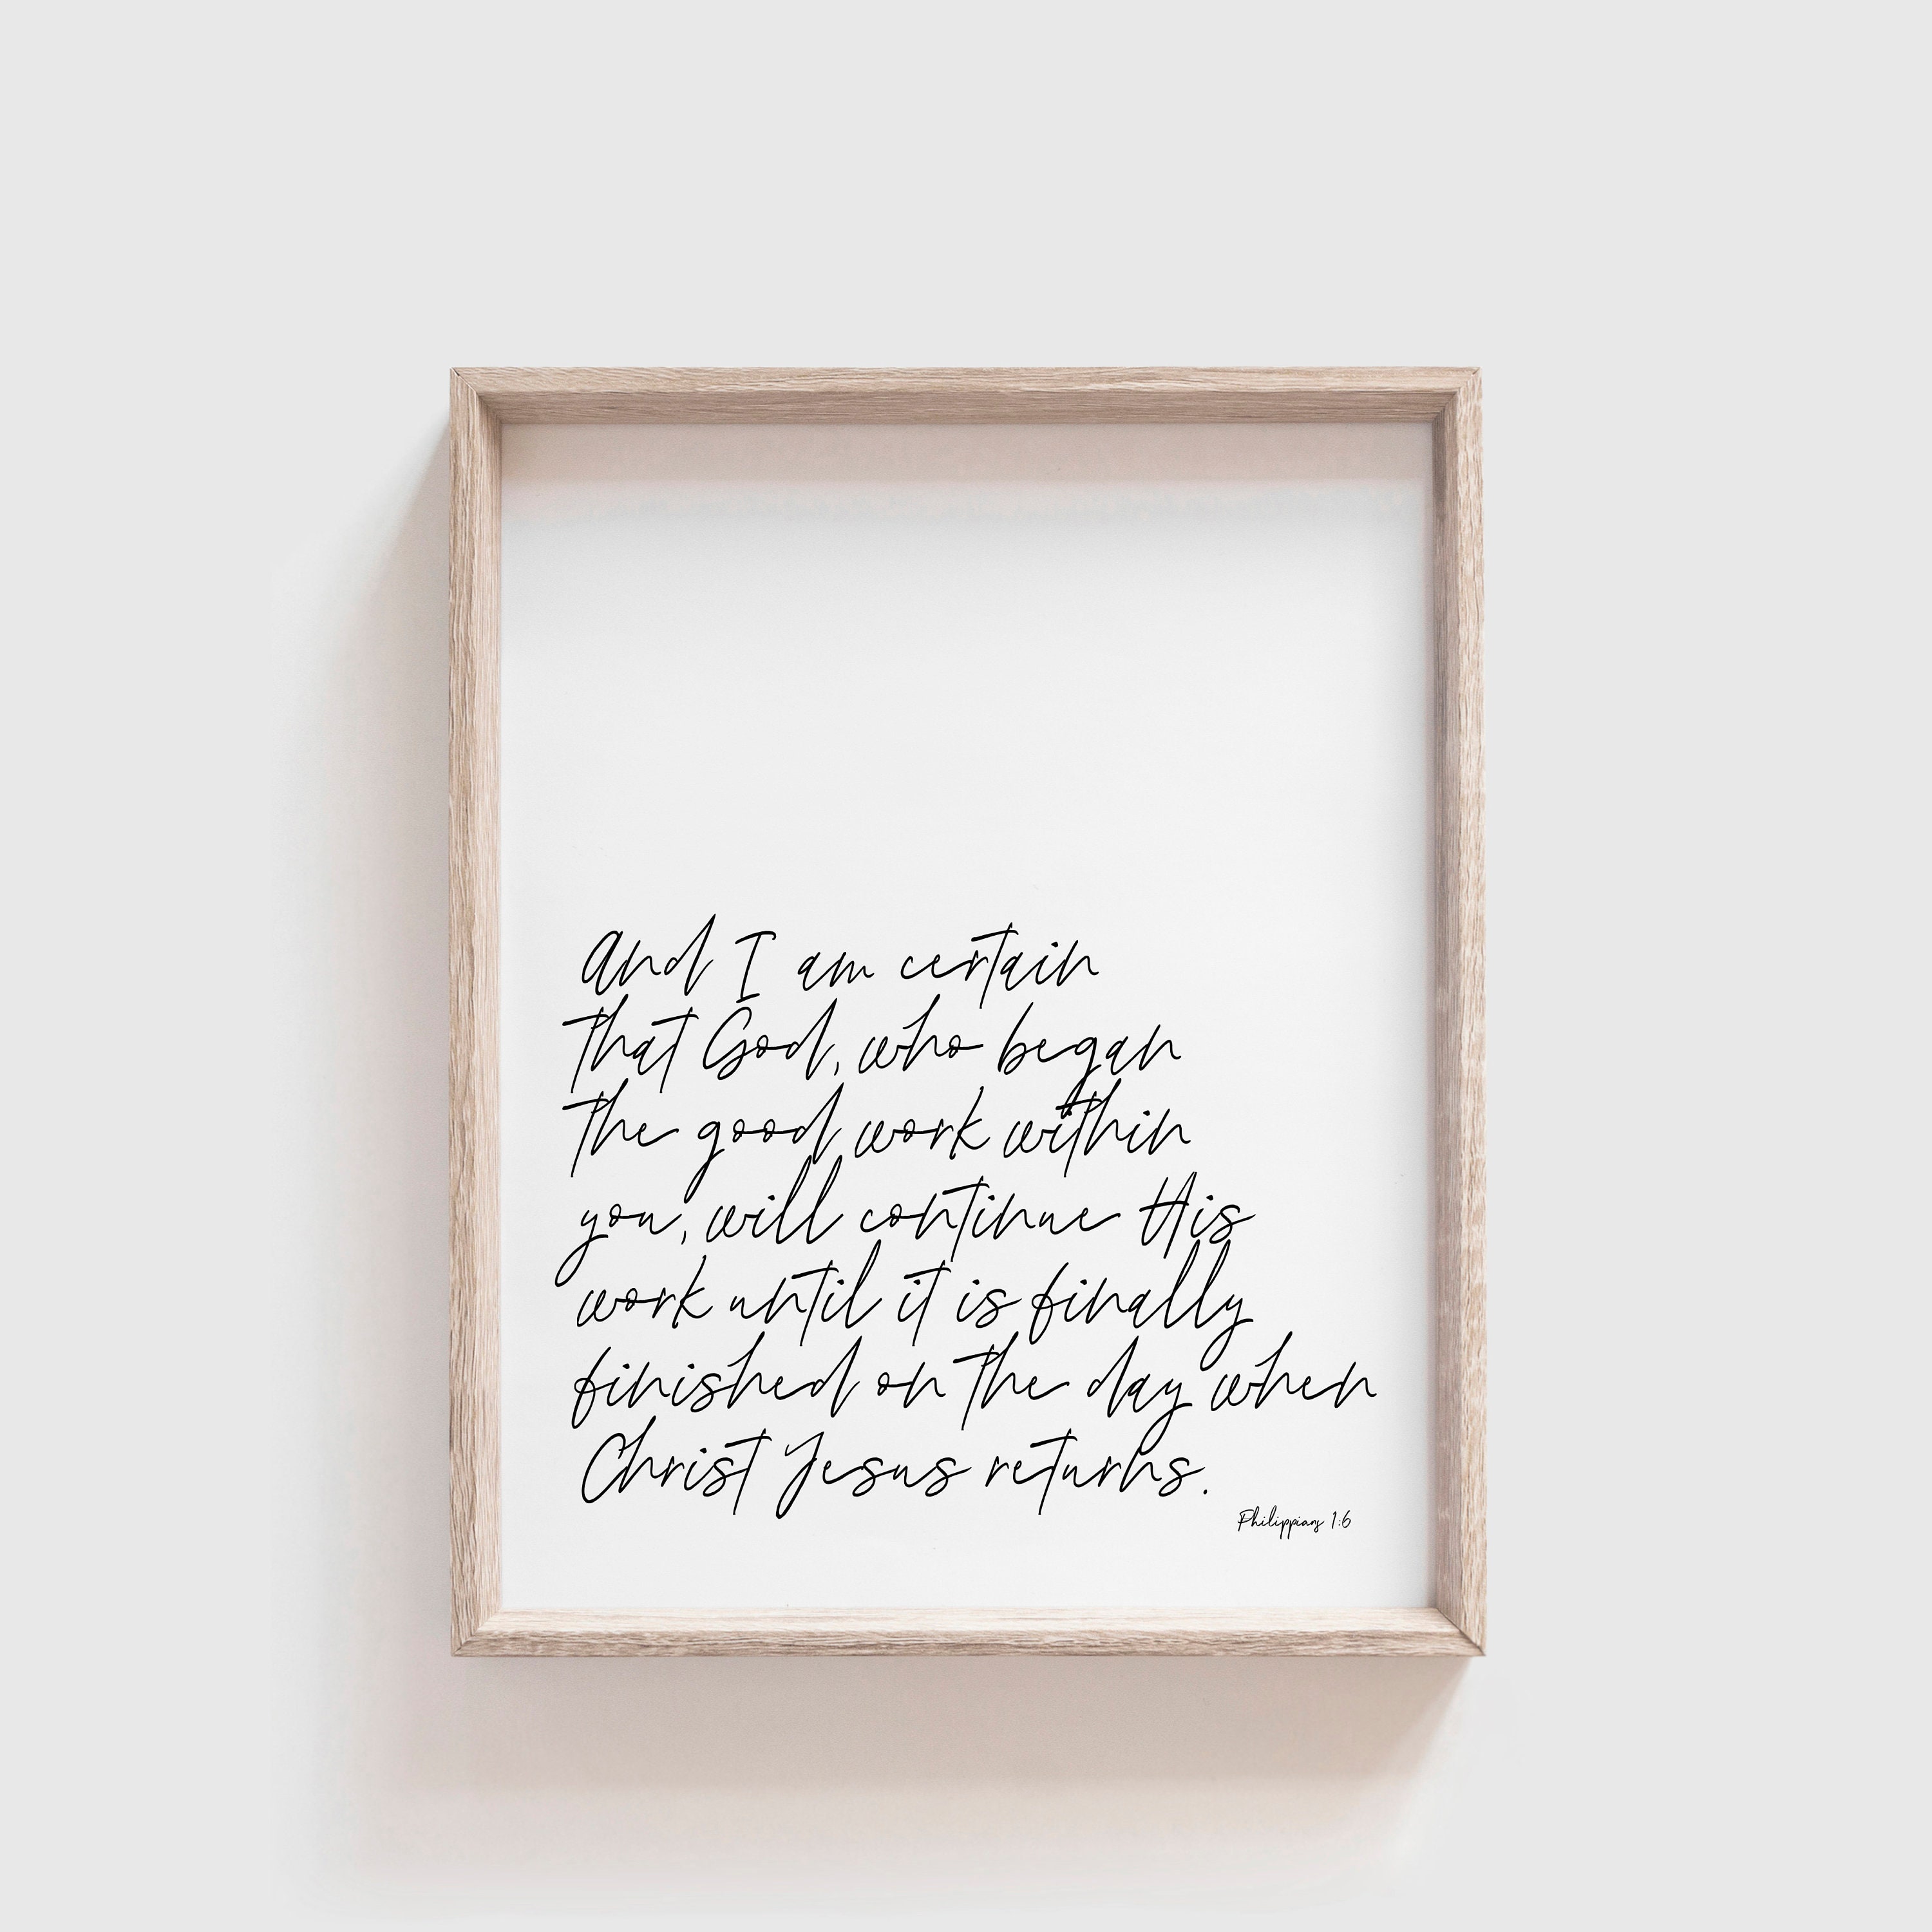 And I am certain
that God, who began
the good work within
you, will continue His
work until it is finally
finished on the day when
Christ Jesus returns.
Philippians 1:6